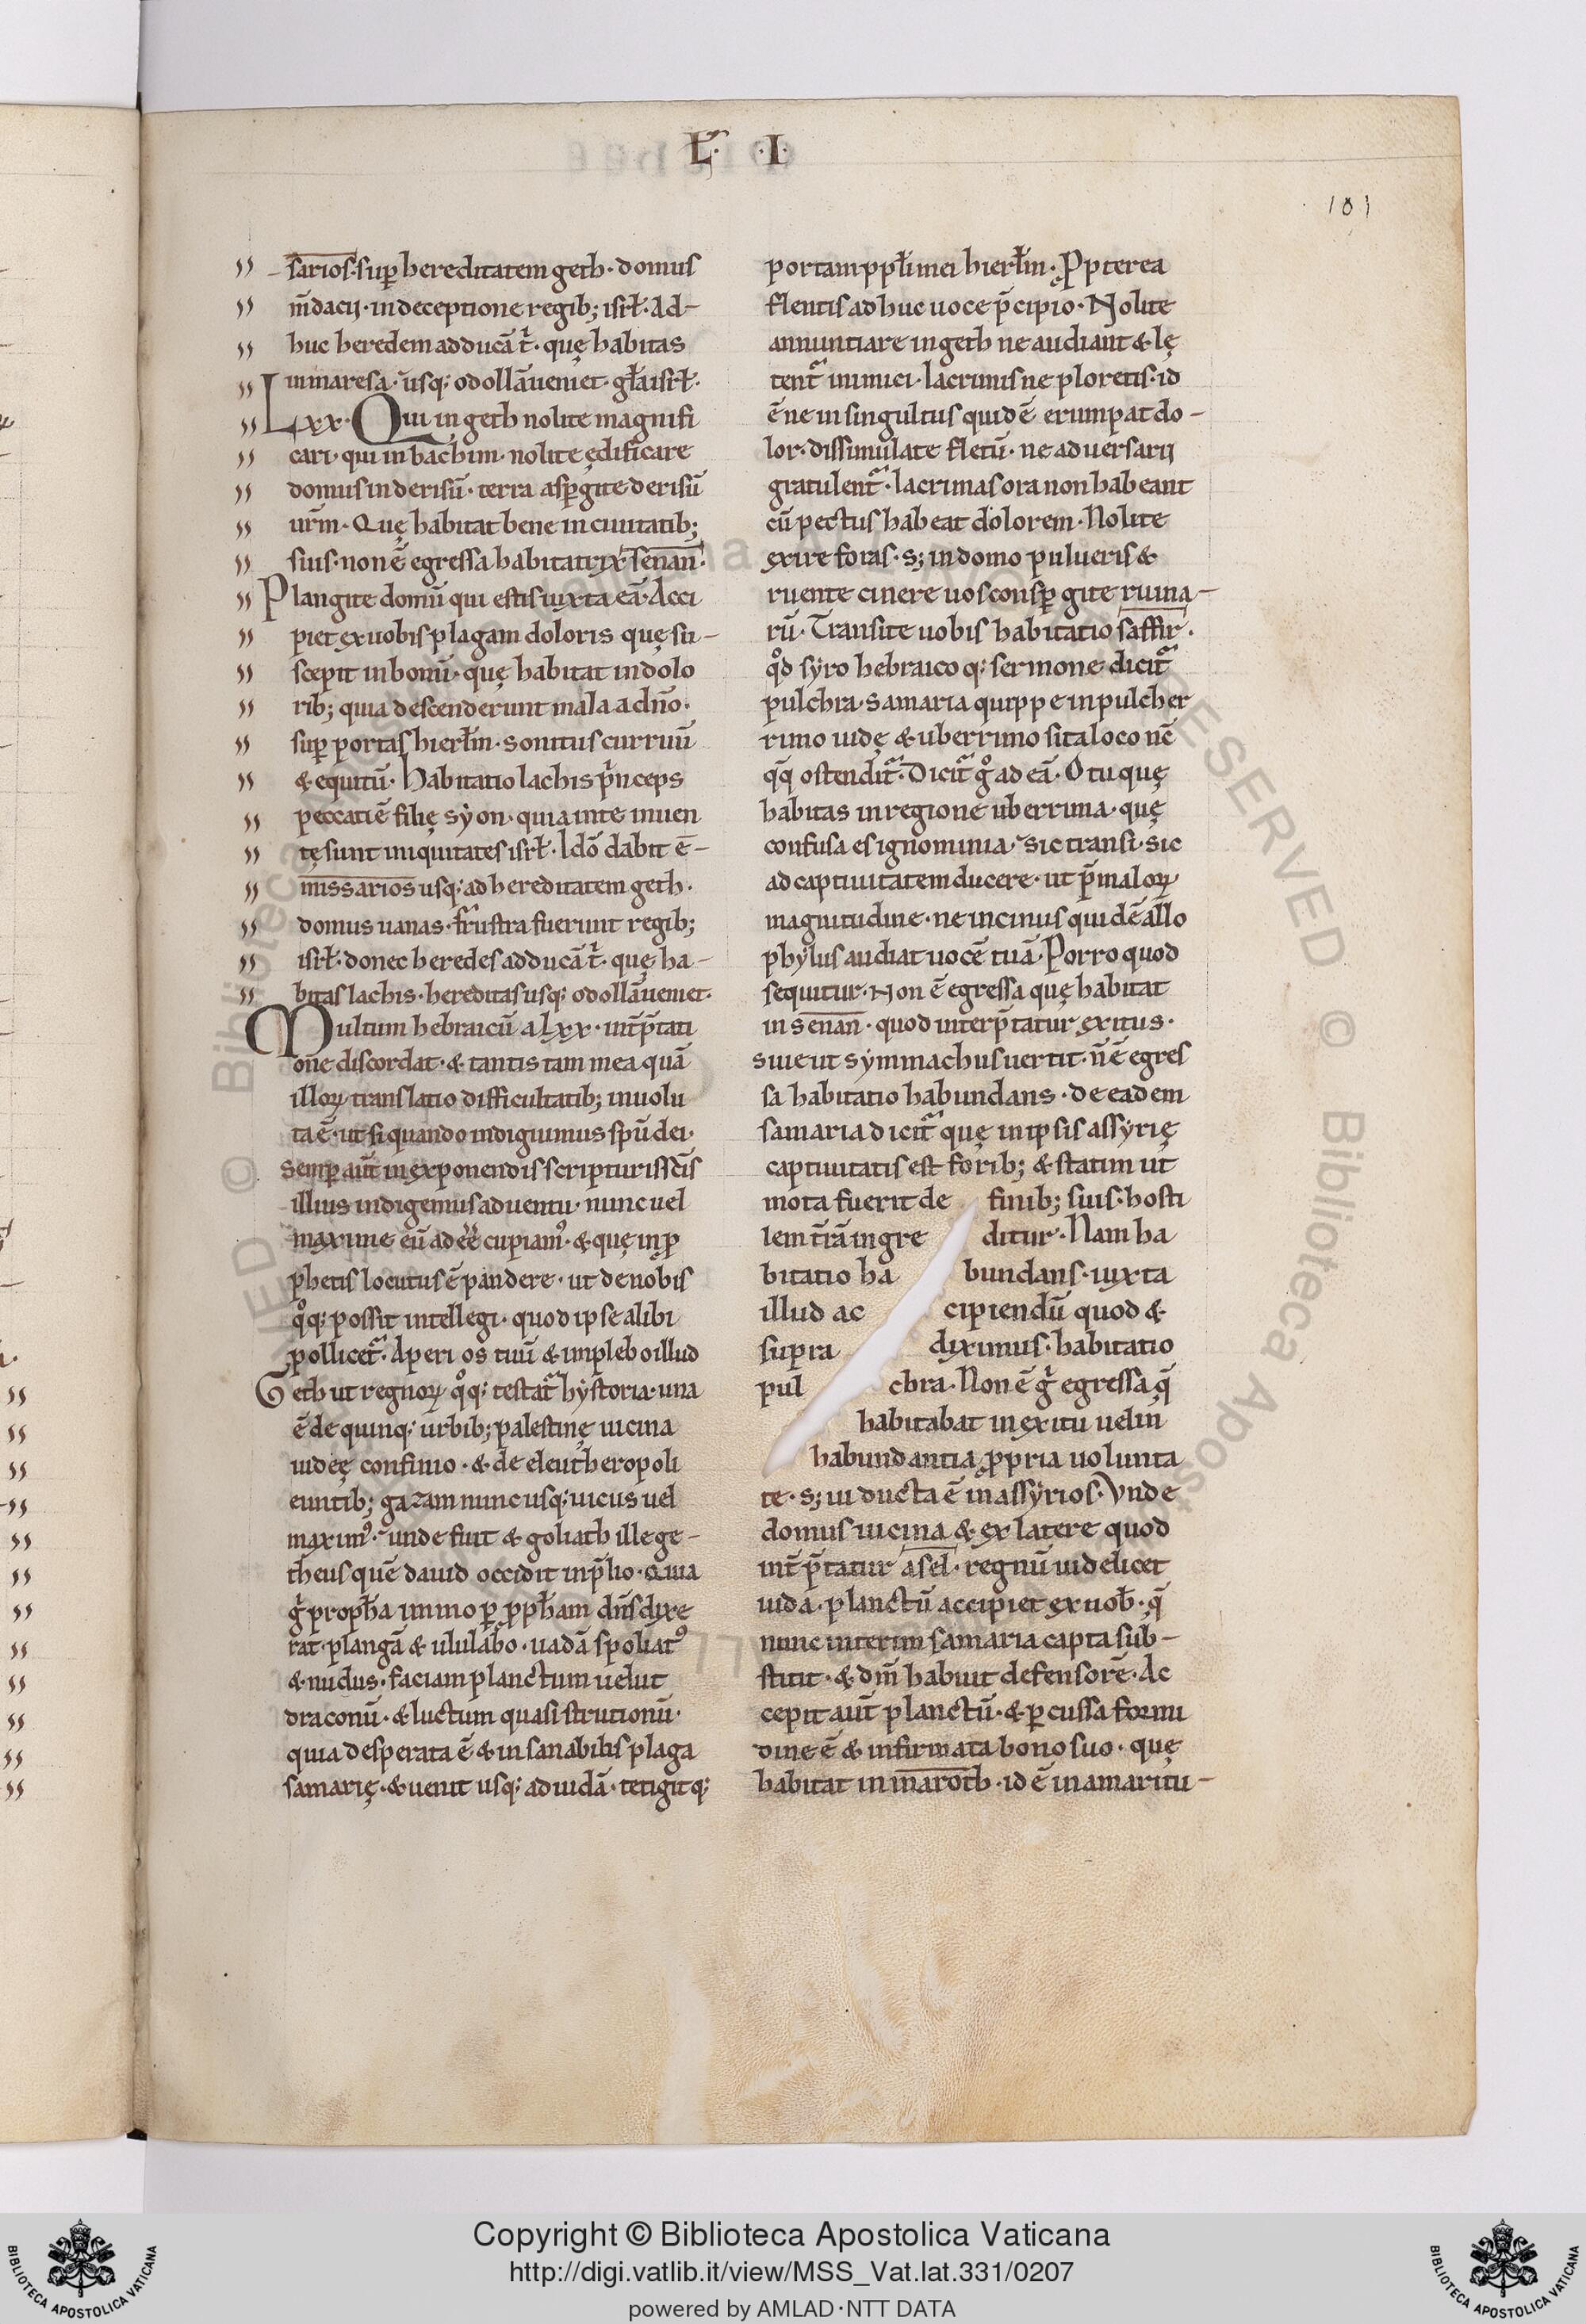 L̃· ·I·
101
sarios·sup̱ hereditatem geth·domus
m̄dacij·in deceptione regib; isrł·Ad-
huc heredem adducā t̛·quę habitas
in maresa·usq; odollā ueniet·gła isrł·
Lxx·Qui in geth nolite magnifi
cari·qui in bachim·nolite ędificare
domus in derisū·terra asp̱gite derisū
ur̄m·Quę habitat bene in ciuitatib;
suis·non ē egressa habitatrix senan·
Plangite domū qui estis iuxta eā·Acci
piet ex uobis plagam doloris quę su-
scepit in bonū·quę habitat in dolo
rib; quia descenderunt mala a dn̄o·
sup̱ portas hierłm·sonitus curruū
& equitū·habitatio lachis p̛nceps
peccati ē filię syon·quia in te inuen
tę sunt iniquitates isrł·Idō dabit ē-
missarios usq; ad hereditatem geth·
domus uanas·frustra fuerunt regib;
isrł·donec heredes adducā t̛·quę ha-
bitas lachis·hereditas usq; odollā ueniet·
Multum hebraicū a Lxx·int̄p̄tati
one discordat·& tantis tam mea quā
illoꝝ translatio difficultatib; inuolu
ta ē·ut si quando indiguimus sp̄u dei·
Semp̱ aut̄ in exponendis scripturis sc̄is
illius indigemus aduentu·nunc uel
maxime eū adeē cupiam⁹·& quę in ꝓ
phetis locutus ē pandere·ut de nobis
qͦq; possit intellegi·quod ipse alibi
pollicet᷑·Aperi os tuū & impleboillud
Geth ut regnoꝝ qͦq; testat᷑ hystoria·una
ē de quinq; urbib; palestinę uicina
iudeę confinio·& de eleutheropoli
euntib; gazam nunc usq; uicus uel
maxim⁹·unde fuit & goliath ille ge-
theus quē dauid occidit in p̄lio·Quia
g̛ propħa immo p̱ ꝓpħam dn̄s dixe
rat·plangā & ululabo·uadā spoliat⁹
& nudus·faciam planctum uelut
draconū·& luctum quasi strutionū·
quia desperata ē & insanabilis plaga
samarię·& uenit usq; ad iudā·tetigit q;
portam ppłi mei hierłm·Ꝓpterea
flentis ad huc uoce p̄cipio·Nolite
annuntiare in geth ne audiant & lę
tent᷑ inimici·lacrimis ne ploretis·id
ē ne in singultus quidē erumpat do-
lor·dissimulate fletū·ne aduersarij
gratulent᷑·lacrimas ora non habeant
cū pectus habeat dolorem·Nolite
exire foras·s; in domo pulueris &
ruente cinere uos consp̱gite ruina-
rū·Transite uobis habitatio saffir·
qͦd syro hebraico q; sermone dicit᷑
pulchra·samaria quippe in pulcher
rimo iudę & uberrimo sita loco nc̄
qq̄ ostendit᷑·Dicit᷑ gͦ ad eā·O tu quę
habitas in regione uberrima·quę
confusa es ignominia·sic transi·sic
ad captiuitatem ducere·ut p̄ maloꝝ
magnitudine·ne inimicus quidē allo
phylus audiat uocē tuā·Porro quod
sequitur·Non ē egressa quę habitat
in senan·quod interp̄tatur exitus·
siue ut symmachus uertit·n̄ ē egres
sa habitatio habundans·de eadem
samaria dicit᷑ quę in ipsis assyrię
captiuitatis est forib; & statim ut
mota fuerit de finib; suis·hosti
lem t̄rā ingre ditur·Nam ha
bitatio ha bundans·iuxta
illud ac cipiendū quod &
supra diximus·habitatio
pul chra·Non ē g̛ egressa q̄
habitabat in exitu uel in
habundantia ꝓpria uolunta
te·s; ui ducta ē in assyrios·Vnde
domus uicina & ex latere quod
int̄p̄tatur asel·regnū uidelicet
iuda·planctū accipiet ex uob̄·q̄
nunc interim samaria capta sub-
stitit·& dn̄m habuit defensorē·Ac
cepit aut̄ planctū·& p̱cussa formi
dine ē & infirmata bono suo·quę
habitat in maroth·id ē in amaritu-
Copyright © Biblioteca Apostolica Vaticana
http://digi.vatlib.it/view/MSS_Vat.lat.331/0207
powered by AMLAD·NTT DATA
BIBLIOTECA APOSTOLICA VATICANA
BIBLIOTECA APOSTOLICA VATICANA